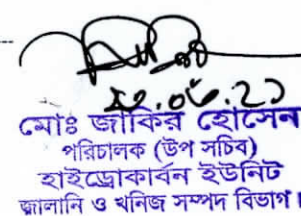 ২০.০৬.২১
মোঃ জাকির হোসেন
পরিচালক (উপ সচিব)
হাইড্রোকার্বন ইউনিট
জ্বালানি ও খনিজ সম্পদ বিভাগ